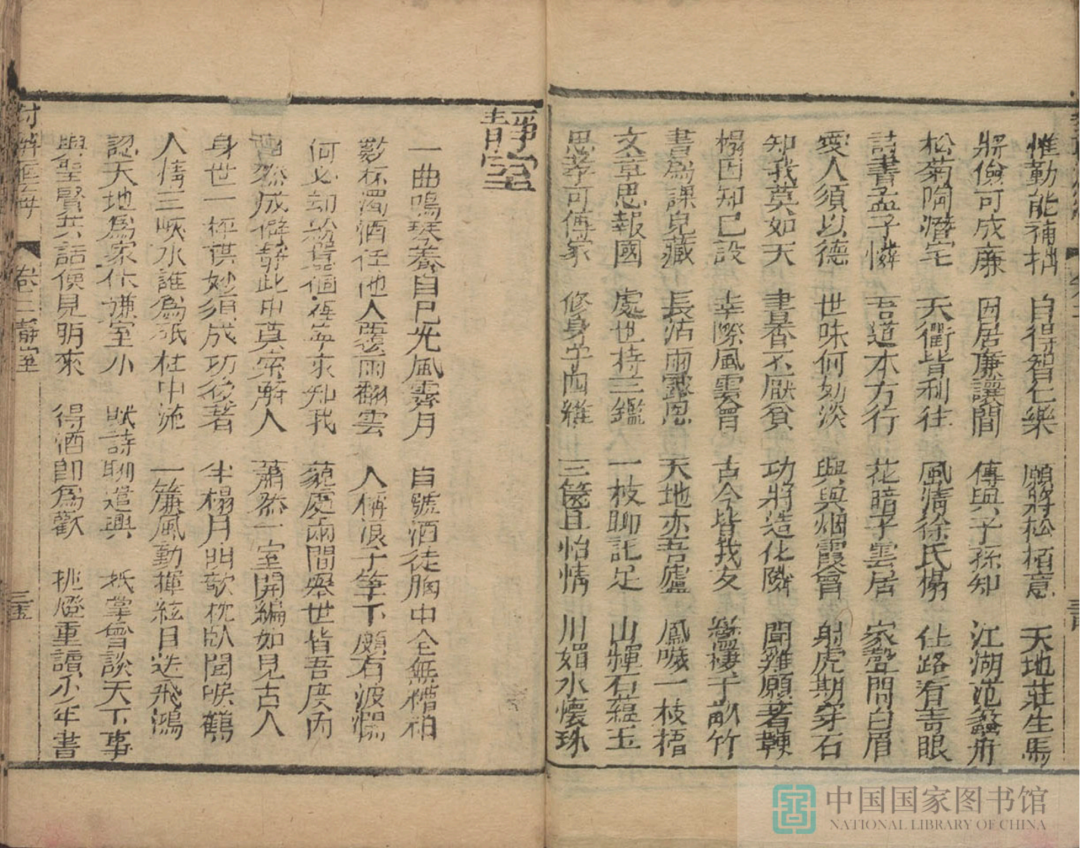 惟勤能補拙 自得智仁樂 願將松栢意 天地莊生馬
將儉可成廉 因居廉讓間 傳與子孫知 江湖范蠡舟
松菊陶潛宅 天衢皆利往 風清徐氏榻 仕路看青眼
詩書孟子憐 吾道本方行 花暗子雲居 家聲問白眉
愛人須以德 世味何如淡 與與烟霞會 射虎期穿石
知我莫如天 書香不厭貧 功將造化隣 聞雞願著鞭
榻因知己設 幸際風雲會 古今皆我友 鸞棲千畝竹
書為課兒藏 長沾雨露恩 天地亦吾廬 鳳噦一枝梧
文章思報國 處世持三鑑 一枝聊託足 山輝石韞玉
思孝可傳家 修身學四維 三篋且怡情 川媚水懷珠
靜室
一曲鳴琴養自己光風霽月 自號酒徒胸中全無糟粕
數杯濁酒任他人覆雨翻雲 人稱浪子筆下頗有波瀾
何必 知我 藐處兩間舉世皆吾度內
成癖靜此中真索解人 蕭然一室開編如見古人
身世一枰棋妙須成功後著 半榻月閒欹枕臥聞喚鶴
人情三峽水誰為砥柱中流 一簾風動揮絃目送飛鴻
認天地為家休嫌室小 賦詩聊遣興 抵掌會談天下事
與聖賢共話便見朋來 得酒即為歡 挑燈重讀少年書
卷三靜室
三五
中国国家图书馆
NATIONAL LIBRARY OF CHINA